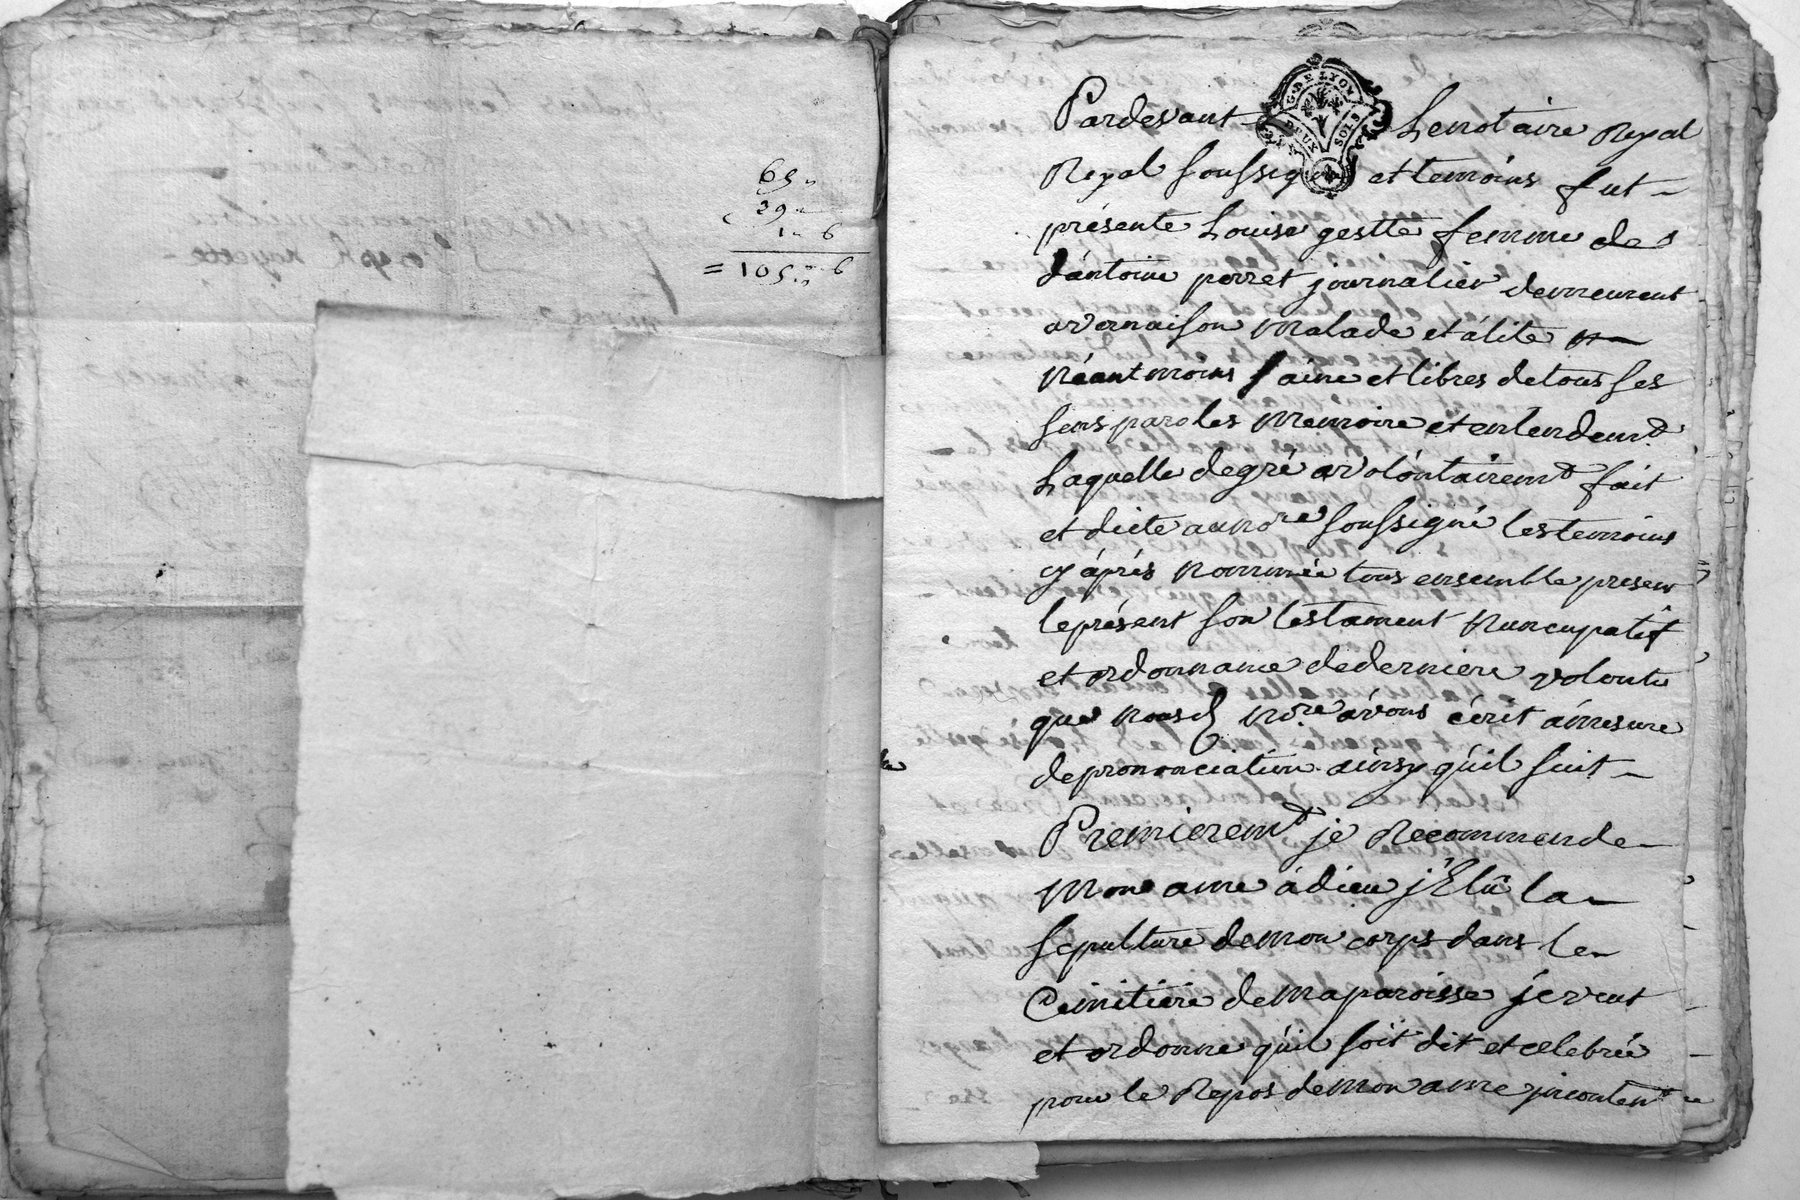 69 "
39 "
1 " 6
= 105 " 6
G. DE LYON
DEUX SOLS
Pardevant Le notaire Royal
Royal soussigné et temoins fut
présente Louise gestte femme de
d'antoine perret journalier demeurent
a vernaison malade et álité
Néantmoins saine et libres de tous ses
sens paroles memoire et entendemt
Laquelle de gré a volóntairemt fait
et dicté au nore soussigné les temoins
cy áprés nommée tous ensemble presens
le présent son testament Nuncupatif
et ordonnance de derniere volonté
que nousd nore ávons écrit ámesure
de prononciation ainsy qúil suit
Premieremt je Recommende
mon ame á dieu j'Elû la
sepulture de mon corps dans le
Cimitiére de ma paroisse je veut
et ordonne qúil soit dit et celebrée
pour le Repos de mon ame incontent